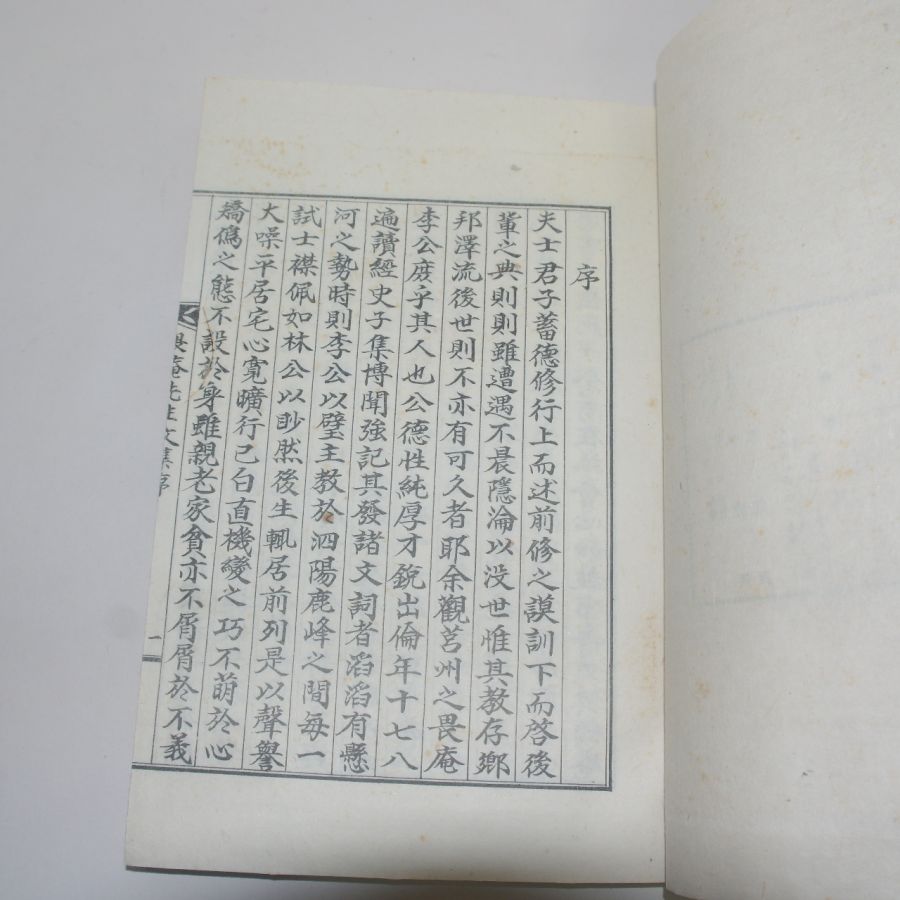 序
夫士君子蓄德修行上而述前修之謨訓下而啓後
輩之典則則雖遭遇不晨隱淪以没世惟其教存鄉
邦澤流後世則不亦有可久者耶余觀莒州之畏庵
李公庶乎其人也公德性純厚才銳出倫年十七八
遍讀經史子集博聞強記其發諸文詞者滔滔有懸
河之勢時則李公以璧主教於泗陽鹿峰之間每一
試士襟佩如林公以眇然後生輒居前列是以聲譽
大噪平居宅心寬曠行己白直機變之巧不萌於心
矯僞之態不設於身雖親老家貧亦不屑屑於不義
畏庵先生文集序
一